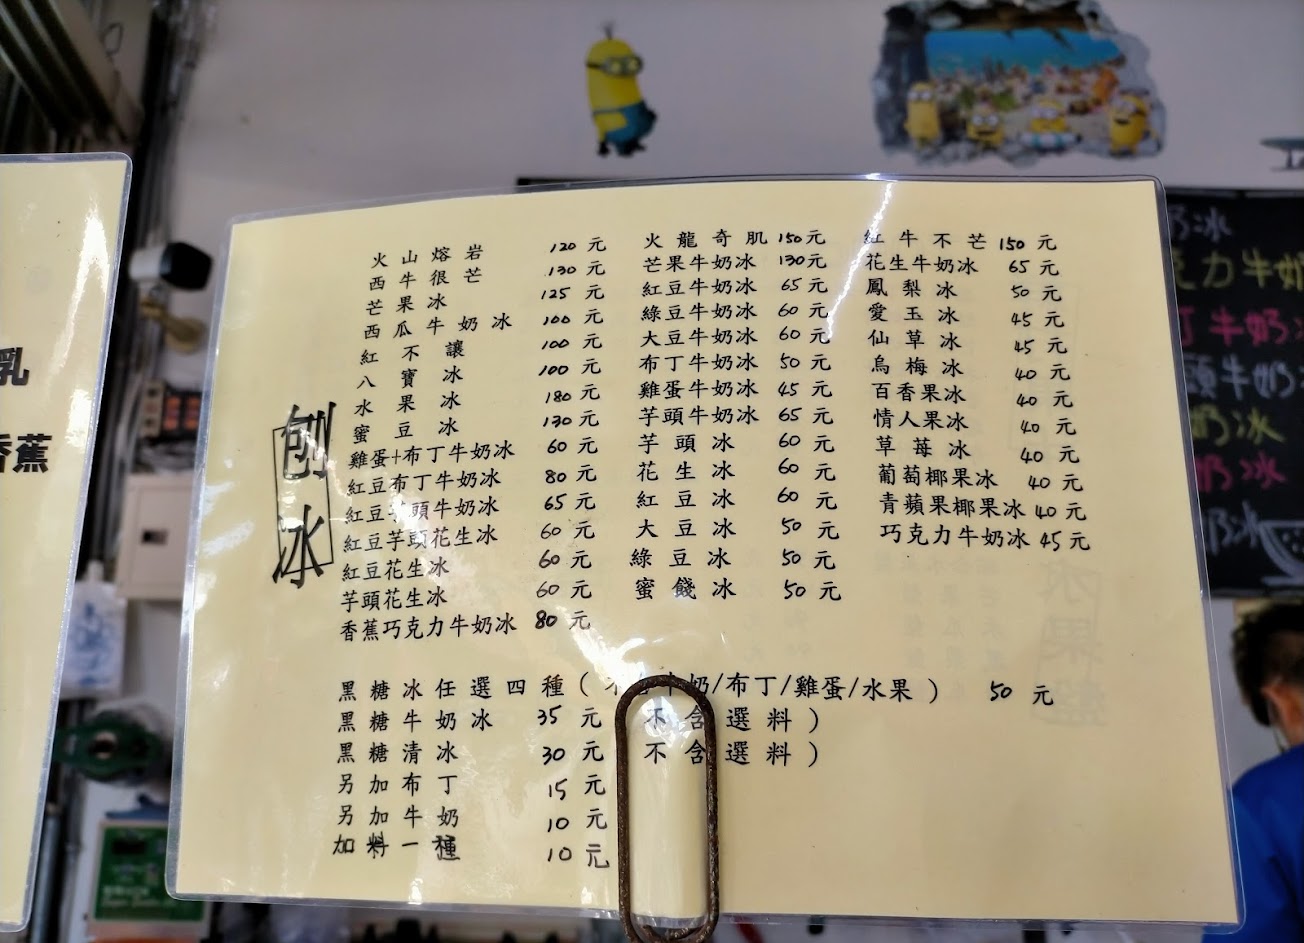 刨冰
火山熔岩 120元
西牛很芒 130元
芒果冰 125元
西瓜牛奶冰 100元
紅不讓 100元
八寶冰 100元
水果冰 180元
蜜豆冰 130元
雞蛋+布丁牛奶冰 60元
紅豆布丁牛奶冰 80元
紅豆芋頭牛奶冰 65元
紅豆芋頭花生冰 60元
紅豆花生冰 60元
芋頭花生冰 60元
香蕉巧克力牛奶冰 80元
火龍奇肌 150元
芒果牛奶冰 130元
紅豆牛奶冰 65元
綠豆牛奶冰 60元
大豆牛奶冰 60元
布丁牛奶冰 50元
雞蛋牛奶冰 45元
芋頭牛奶冰 65元
芋頭冰 60元
花生冰 60元
紅豆冰 60元
大豆冰 50元
綠豆冰 50元
蜜餞冰 50元
紅牛不芒 150元
花生牛奶冰 65元
鳳梨冰 50元
愛玉冰 45元
仙草冰 45元
烏梅冰 40元
百香果冰 40元
情人果冰 40元
草莓冰 40元
葡萄椰果冰 40元
青蘋果椰果冰 40元
巧克力牛奶冰 45元
黑糖冰任選四種(不 牛奶/布丁/雞蛋/水果) 50元
黑糖牛奶冰 35元 不含選料)
黑糖清冰 30元 不含選料)
另加布丁 15元
另加牛奶 10元
加料一種 10元
乳
香蕉
奶冰
克力牛奶
丁牛奶
頭牛奶
奶冰
奶冰
奶冰